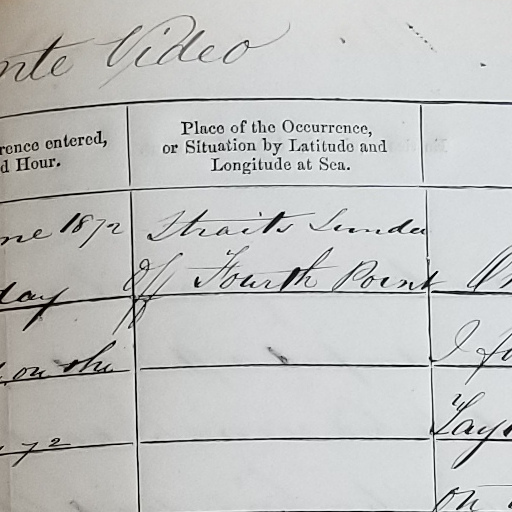 nte Video
rence entered,
d Hour.
Place of the Occurrence,
or Situation by Latitude and
Longitude at Sea.
ne 1872
Straits Sunda
day
Off Fourth Point
on the
I fo
72
Lay
on